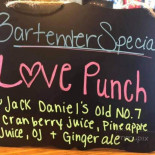 Bartender Special
LOVE PUNCH
"Jack Daniel's Old No.7
cranberry juice, Pineapple
Juice, OJ + Ginger ale~